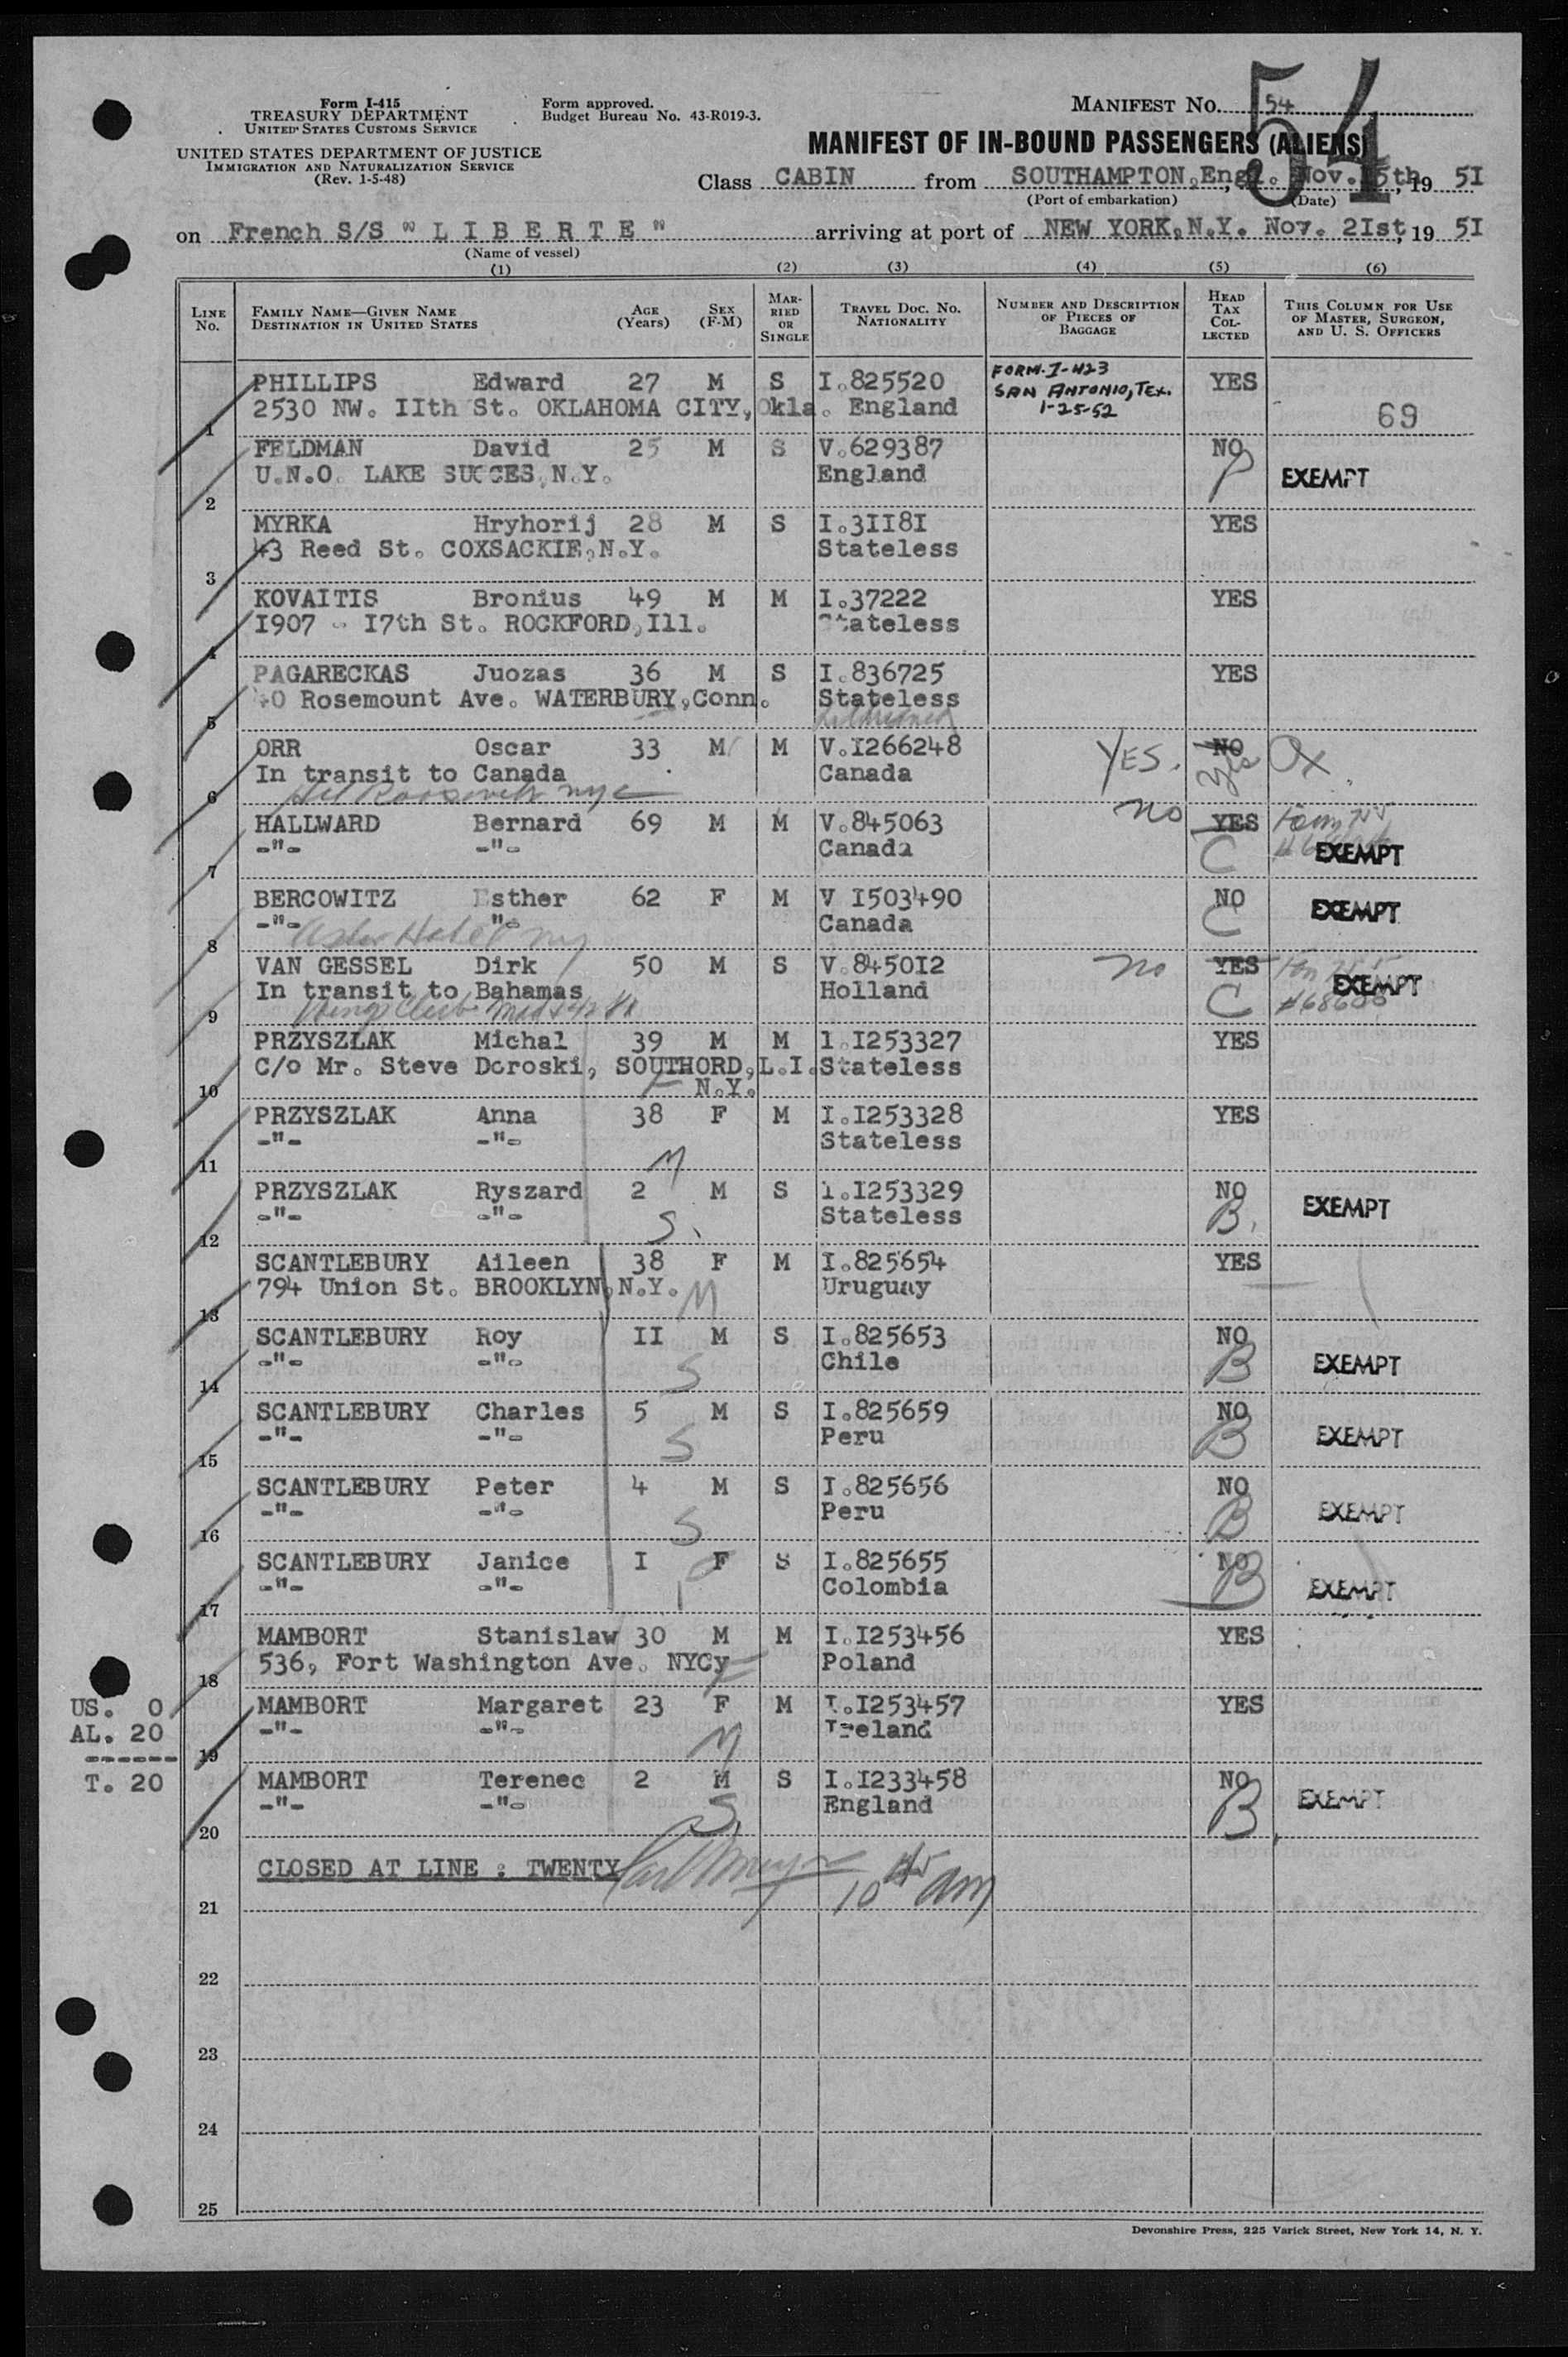 Form I-415
TREASURY DEPARTMENT
UNITED STATES CUSTOMS SERVICE
UNITED STATES DEPARTMENT OF JUSTICE
IMMIGRATION AND NATURALIZATION SERVICE
(Rev. 1-5-48)
Form approved.
Budget Bureau No. 43-R019-3.
MANIFEST NO. 54
54
MANIFEST OF IN-BOUND PASSENGERS (ALIENS)
Class CABIN from SOUTHAMPTON, Engl. Nov. 15th, 19 51
(Port of embarkation) (Date)
on French S/S " L I B E R T E " arriving at port of NEW YORK, N.Y. Nov. 2Ist, 19 5I
(Name of vessel)
(1) (2) (3) (4) (5) (6)
LINE NO.
FAMILY NAME—GIVEN NAME
DESTINATION IN UNITED STATES
AGE (YEARS)
SEX (F-M)
MARRIED OR SINGLE
TRAVEL DOC. NO.
NATIONALITY
NUMBER AND DESCRIPTION OF PIECES OF BAGGAGE
HEAD TAX COLLECTED
THIS COLUMN FOR USE OF MASTER, SURGEON, AND U. S. OFFICERS
1 PHILLIPS Edward 27 M S I.825520 FORM-I-423 SAN ANTONIO, TEX. 1-25-52 YES
2530 NW. IIth St. OKLAHOMA CITY, Okla. England 69
2 FELDMAN David 25 M S V.629387 NO
U.N.O. LAKE SUCCES, N.Y. England P EXEMPT
3 MYRKA Hryhorij 28 M S I.3II8I YES
43 Reed St. COXSACKIE, N.Y. Stateless
4 KOVAITIS Bronius 49 M M I.37222 YES
I907 - I7th St. ROCKFORD, Ill. Stateless
5 PAGARECKAS Juozas 36 M S I.836725 YES
40 Rosemount Ave. WATERBURY, Conn. Stateless
6 ORR Oscar 33 M M V.I266248 YES. NO yes
In transit to Canada Canada
Htl Roosevelt nyc
7 HALLWARD Bernard 69 M M V.845063 no YES
-"- -"- Canada C EXEMPT
8 BERCOWITZ Esther 62 F M V I503490 NO
-"- -"- Canada C EXEMPT
Hotel ny
9 VAN GESSEL Dirk 50 M S V.8450I2 no YES
In transit to Bahamas Holland C EXEMPT
#68606
10 PRZYSZLAK Michal 39 M M I.I253327 YES
C/o Mr. Steve Doroski, SOUTHORD, L.I. Stateless
N.Y.
11 PRZYSZLAK Anna 38 F M I.I253328 YES
-"- -"- Stateless
M
12 PRZYSZLAK Ryszard 2 M S I.I253329 NO
-"- -"- Stateless B. EXEMPT
S.
13 SCANTLEBURY Aileen 38 F M I.825654 YES
794 Union St. BROOKLYN, N.Y. Uruguay
M
14 SCANTLEBURY Roy II M S I.825653 NO
-"- -"- S Chile B EXEMPT
15 SCANTLEBURY Charles 5 M S I.825659 NO
-"- -"- S Peru B EXEMPT
16 SCANTLEBURY Peter 4 M S I.825656 NO
-"- -"- S Peru B EXEMPT
17 SCANTLEBURY Janice I F S I.825655 NO
-"- -"- Colombia B EXEMPT
18 MAMBORT Stanislaw 30 M M I.I253456 YES
536, Fort Washington Ave. NYCy Poland
19 MAMBORT Margaret 23 F M I.I253457 YES
-"- -"- M Ireland
20 MAMBORT Terenec 2 M S I.I233458 NO
-"- -"- S. England B EXEMPT
US. 0
AL. 20
------
T. 20
CLOSED AT LINE : TWENTY
10 45 am
21
22
23
24
25
Devonshire Press, 225 Varick Street, New York 14, N. Y.